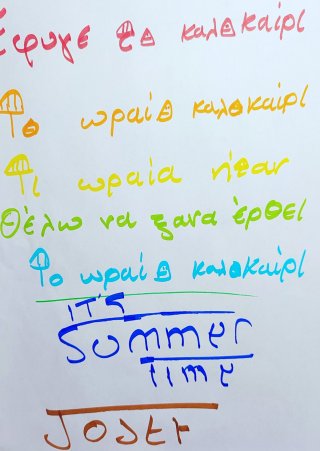 Έφυγε το καλοκαίρι
Το ωραίο καλοκαίρι
Τι ωραία ήταν
Θέλω να ξανα έρθει
Το ωραίο καλοκαίρι
IT'S
SOMMER
TIME